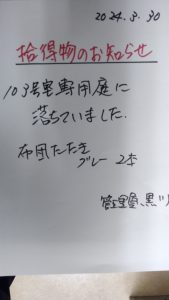 2024.3.30
拾得物のお知らせ
103号室専用庭に
落ちていました.
布団たたき
グレー 2本
管理員、黒川